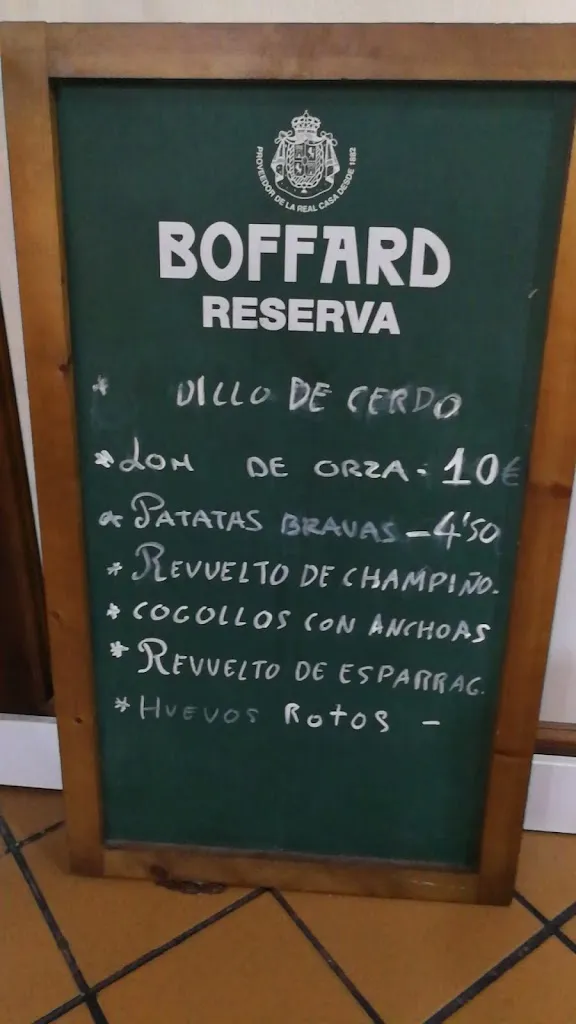 PROVEEDOR DE LA REAL CASA DESDE 1882
BOFFARD
RESERVA
* DILLO DE CERDO
* LOM DE ORZA - 10€
* PATATAS BRAVAS - 4'50
* REVUELTO DE CHAMPIÑO.
* COGOLLOS CON ANCHOAS
* REVUELTO DE ESPARRAG.
* HUEVOS ROTOS -